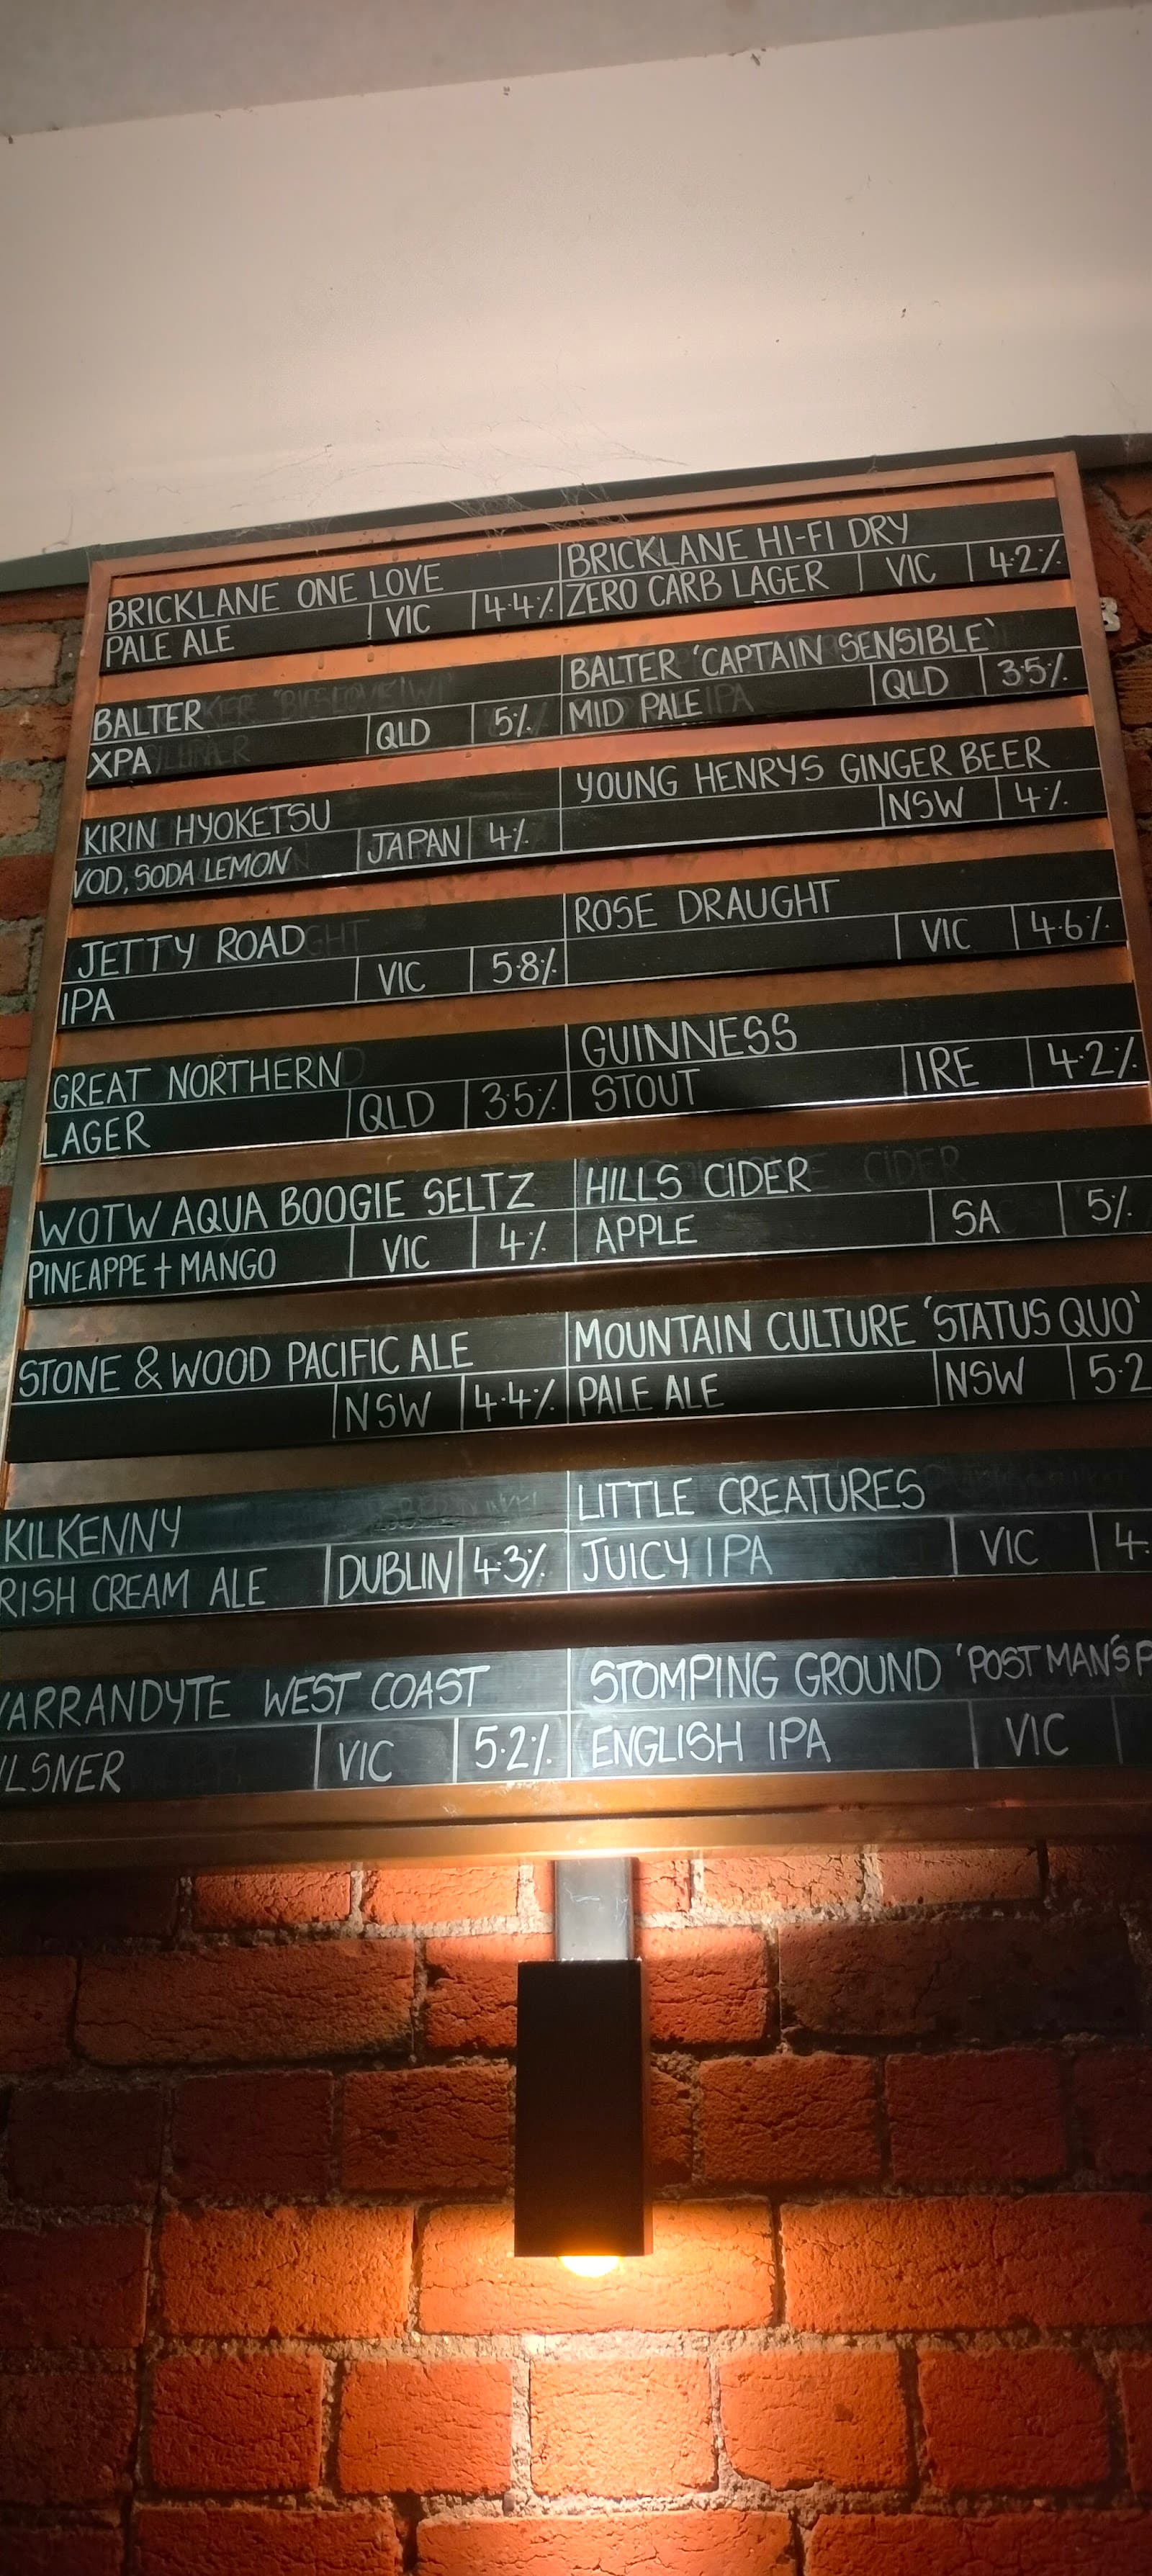 BRICKLANE ONE LOVE
PALE ALE VIC 4.4%
BRICKLANE HI-FI DRY
ZERO CARB LAGER VIC 4.2%
BALTER
XPA QLD 5%
BALTER 'CAPTAIN SENSIBLE'
MID PALE QLD 3.5%
KIRIN HYOKETSU
VOD, SODA LEMON JAPAN 4%
YOUNG HENRYS GINGER BEER
NSW 4%
JETTY ROAD
IPA VIC 5.8%
ROSE DRAUGHT
VIC 4.6%
GREAT NORTHERN
LAGER QLD 3.5%
GUINNESS
STOUT IRE 4.2%
WOTW AQUA BOOGIE SELTZ
PINEAPPE + MANGO VIC 4%
HILLS CIDER
APPLE SA 5%
STONE & WOOD PACIFIC ALE
NSW 4.4%
MOUNTAIN CULTURE 'STATUS QUO'
PALE ALE NSW 5.2
KILKENNY
RISH CREAM ALE DUBLIN 4.3%
LITTLE CREATURES
JUICY IPA VIC 4.
ARRANDYTE WEST COAST
LSNER VIC 5.2%
STOMPING GROUND 'POST MAN'S P
ENGLISH IPA VIC